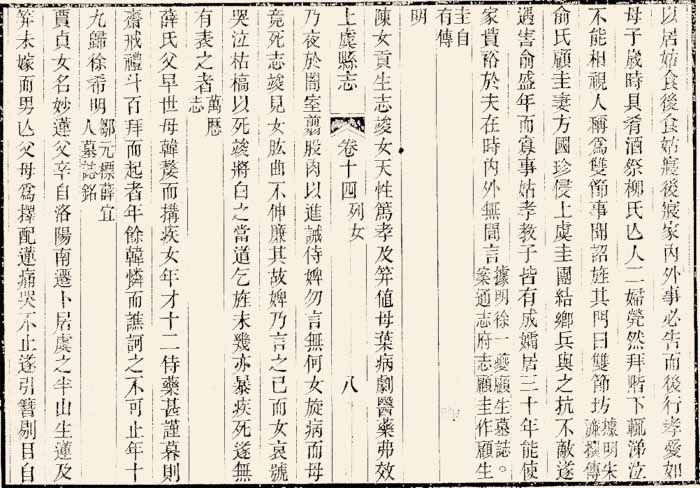 以居姑食後食姑寢後寢家內外事必告而後行孝愛如
母子歲時具肴酒祭柳氏亾人二婦煢然拜階下輒涕泣
不能相視人稱爲雙節事聞詔旌其門曰雙節坊據明朱濂撰傳
俞氏顧圭妻方國珍侵上虞圭團結鄉兵與之抗不敵遂
遇害俞盛年而寡事姑孝教子皆有成孀居三十年能使
家貲裕於夫在時內外無閒言據明徐一夔顧生墓誌。案通志府志顧圭作顧生
圭自有傳
明
陳女貢生志竣女天性篤孝及笄值母葉病劇醫藥弗效
上虞縣志 卷十四 列女 八
乃夜於闇室翦股肉以進誡侍婢勿言無何女旋病而母
竟死志竣見女肱曲不伸廉其故婢乃言之已而女哀號
哭泣枯槁以死竣將白之當道乞旌未幾亦暴疾死遂無
有表之者萬厯志
薛氏父早世母韓嫠而搆疾女年才十二侍藥甚謹暮則
齋戒禮斗百拜而起者年餘韓憐而譙訶之不可止年十
九歸徐希明鄒元標薛宜人墓誌銘
賈貞女名妙蓮父辛自洛陽南遷卜居虞之半山生蓮及
笄未嫁而男亾父母爲擇配蓮痛哭不止遂引簪剔目自